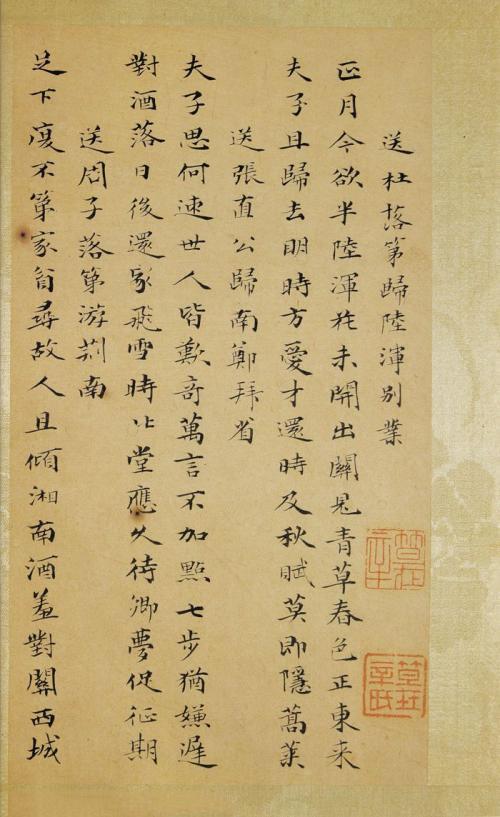 送杜落第歸陸渾別業
正月今欲半陸渾花未開出關見青草春色正東来
夫子且歸去明時方愛才還時及秋賦莫即隱蒿莱
送張直公歸南鄭拜省
夫子思何速世人皆歎奇萬言不加點七步猶嫌遲
對酒落日後還家飛雪時北堂應久待卿夢促征期
送周子落第游荆南
足下復不第家貧尋故人且傾湘南酒羞對關西城